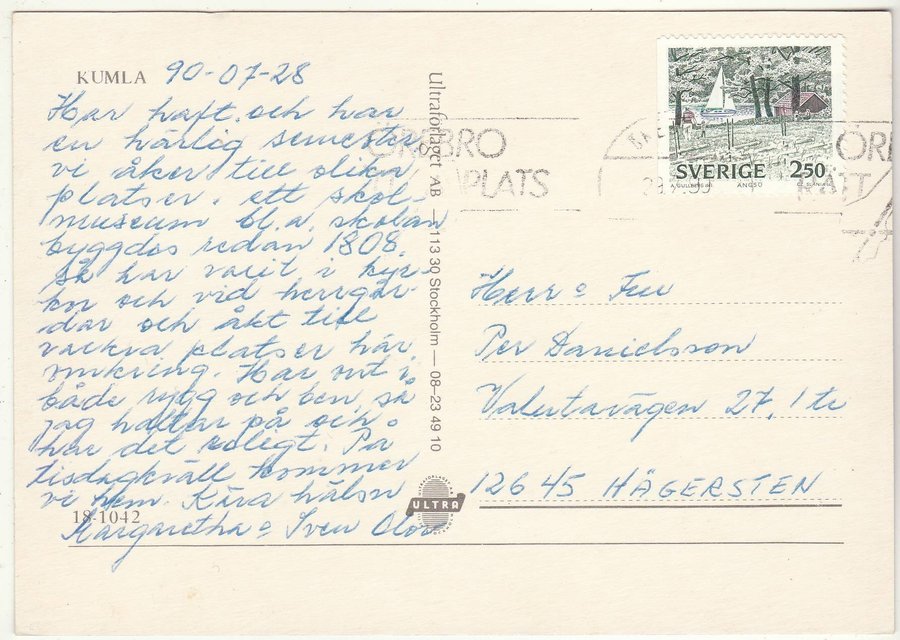 KUMLA 90-07-28
Har haft och har
en härlig semester
vi åker till olika
platser, ett skol-
museum bl.a. skolan
byggdes redan 1808,
så har varit i kyr-
kor och vid herrgår-
dar och åkt till
vackra platser här
omkring. Har ont i
både rygg och ben, så
jag haltar på och
har det roligt. På
tisdagkväll kommer
vi hem. Kära hälsn
Margaretha o Sven Olov
18-1042
Ultraförlaget AB — 113 30 Stockholm — 08–23 49 10
ULTRA
ÖREBRO
PLATS
SVERIGE 250
ÄNGSÖ
ÖRE
Herr o Fru
Per Danielsson
Valutavägen 27, 1 tr
126 45 HÄGERSTEN